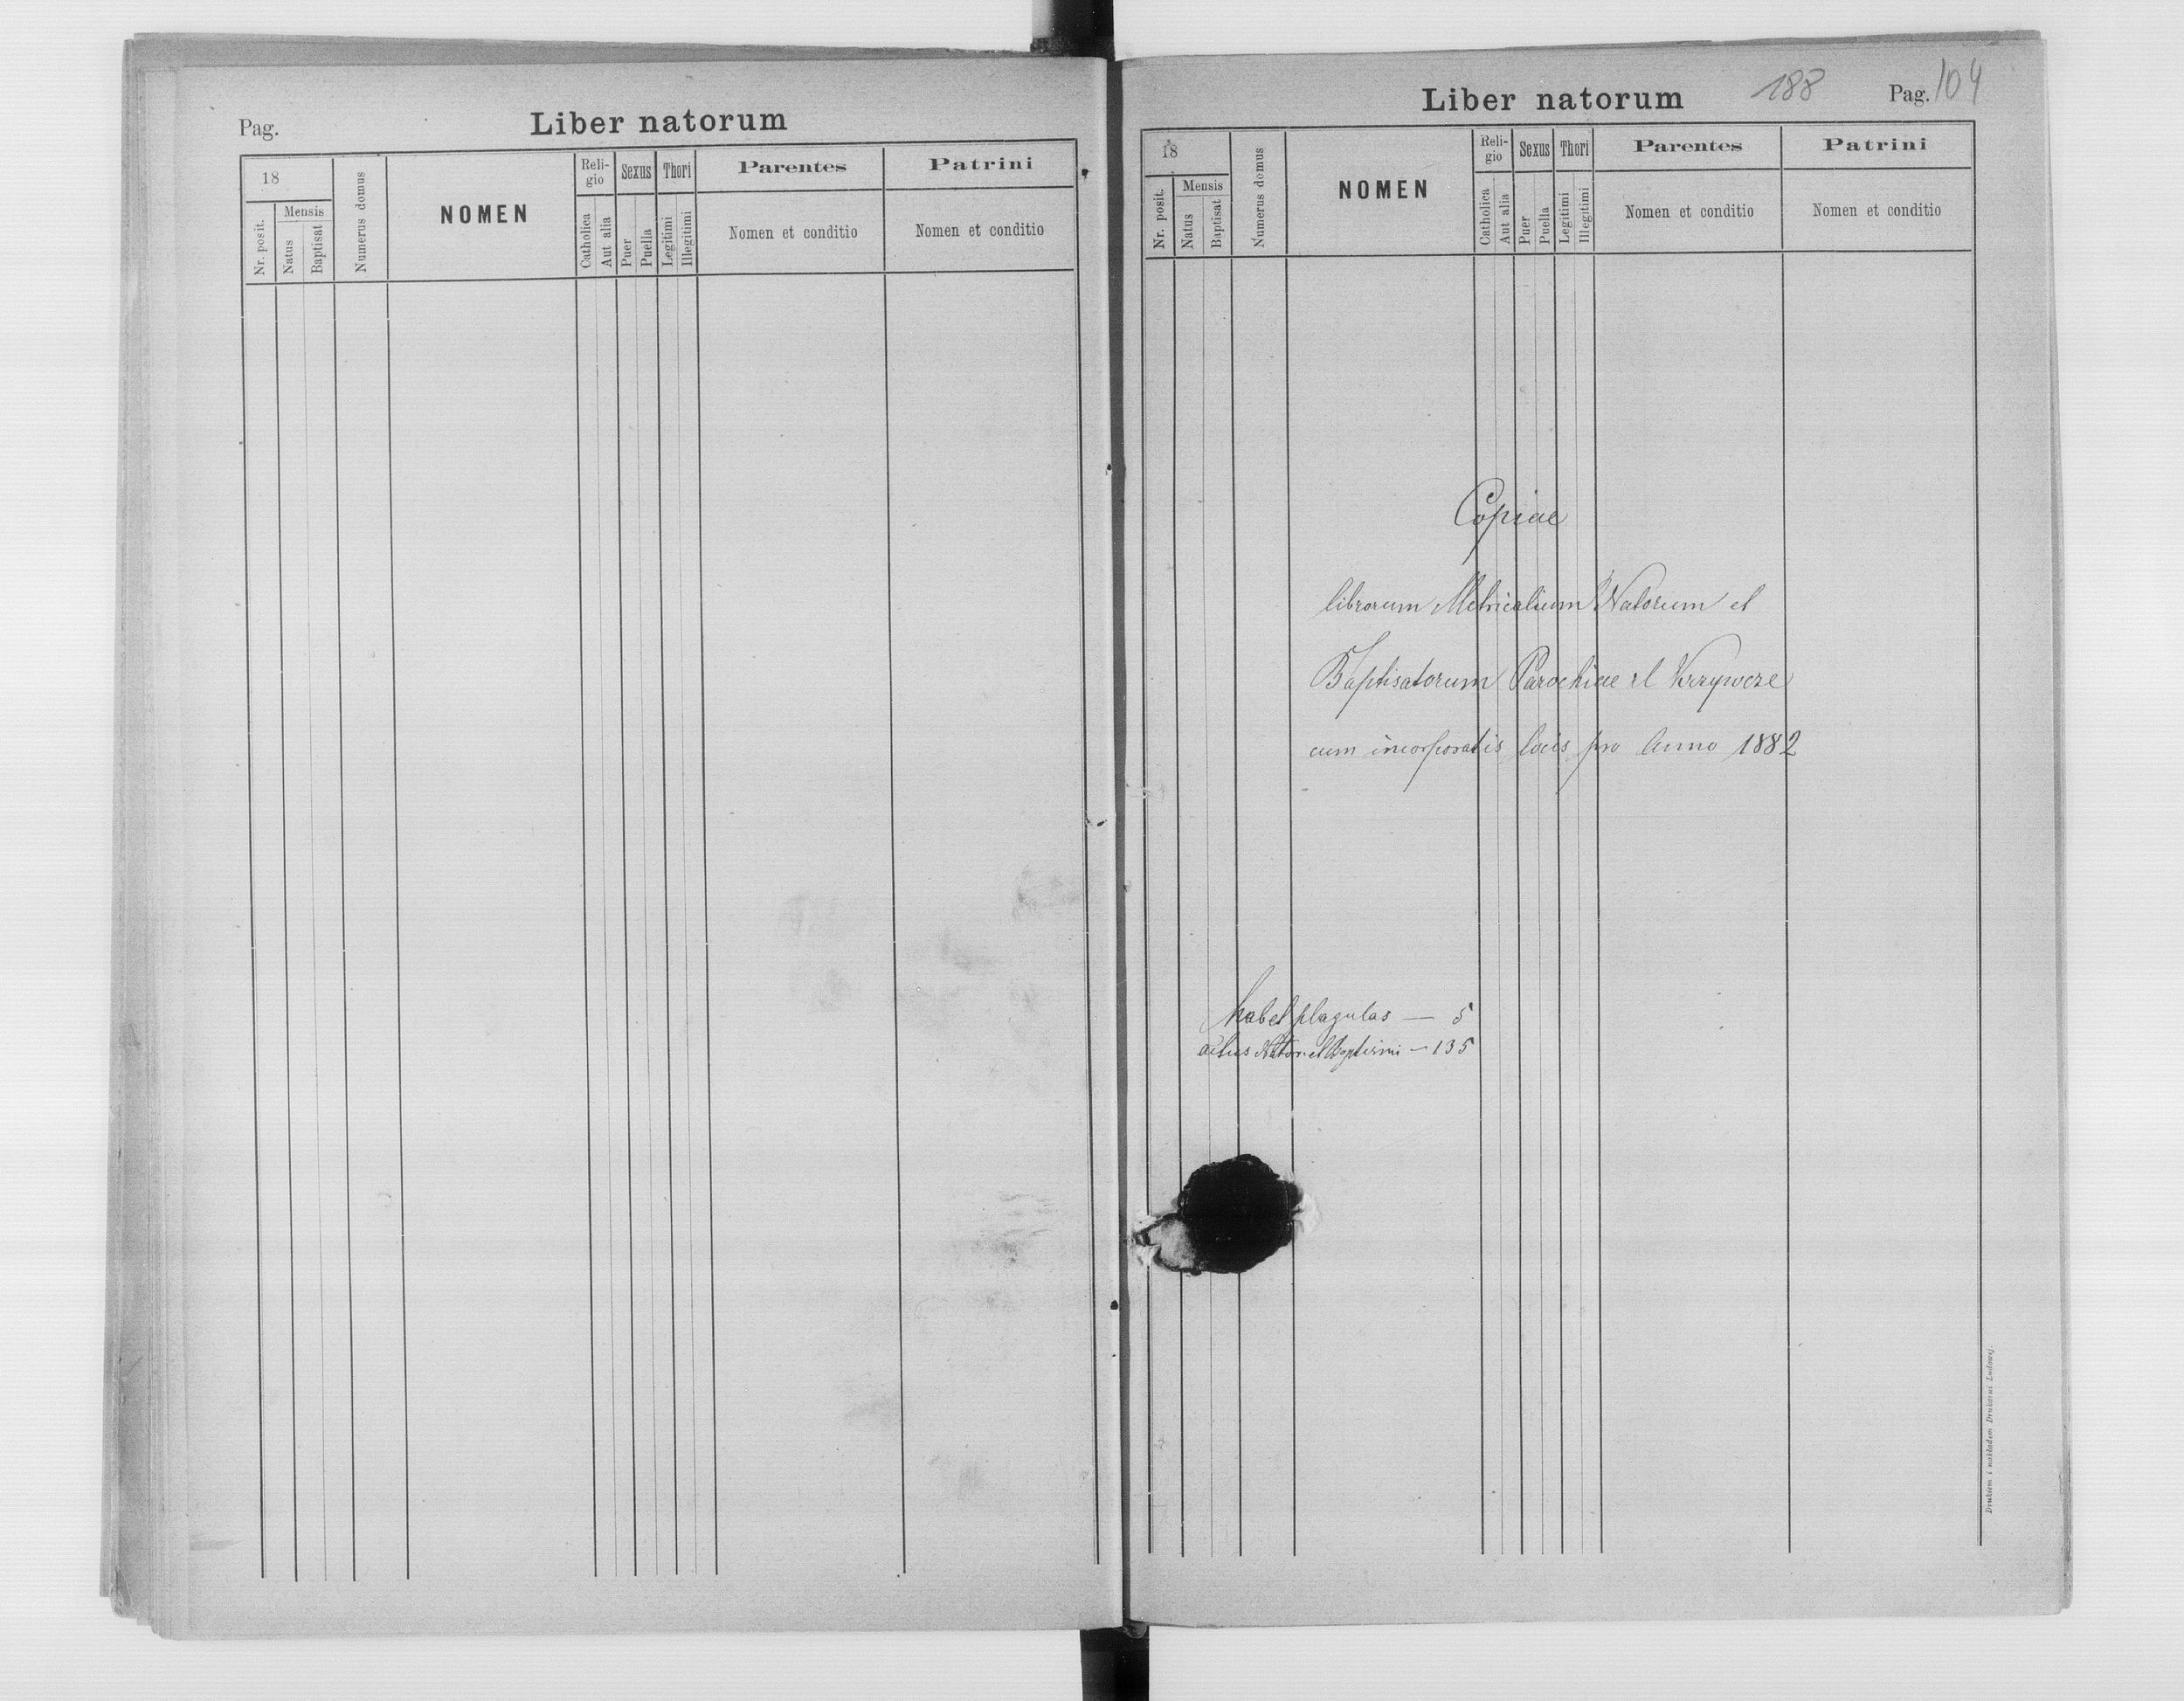 Pag.
Liber natorum
18
Nr. posit.
Mensis
Natus
Baptisat
Numerus domus
NOMEN
Reli-
gio
Catholica
Aut alia
Sexus
Puer
Puella
Thori
Legitimi
Illegitimi
Parentes
Nomen et conditio
Patrini
Nomen et conditio
Liber natorum
188
Pag. 104
18
Nr. posit.
Mensis
Natus
Baptisat
Numerus domus
NOMEN
Reli-
gio
Catholica
Aut alia
Sexus
Puer
Puella
Thori
Legitimi
Illegitimi
Parentes
Nomen et conditio
Patrini
Nomen et conditio
Copiae
librorum Metricalium Natorum et
Baptisatorum Parochiae rl Krzywcze
cum incorporatis locis pro Anno 1882
habet plagulas — 5
actus Nator. et Baptismi — 135
Drukiem i nakładem Drukarni Ludowej.